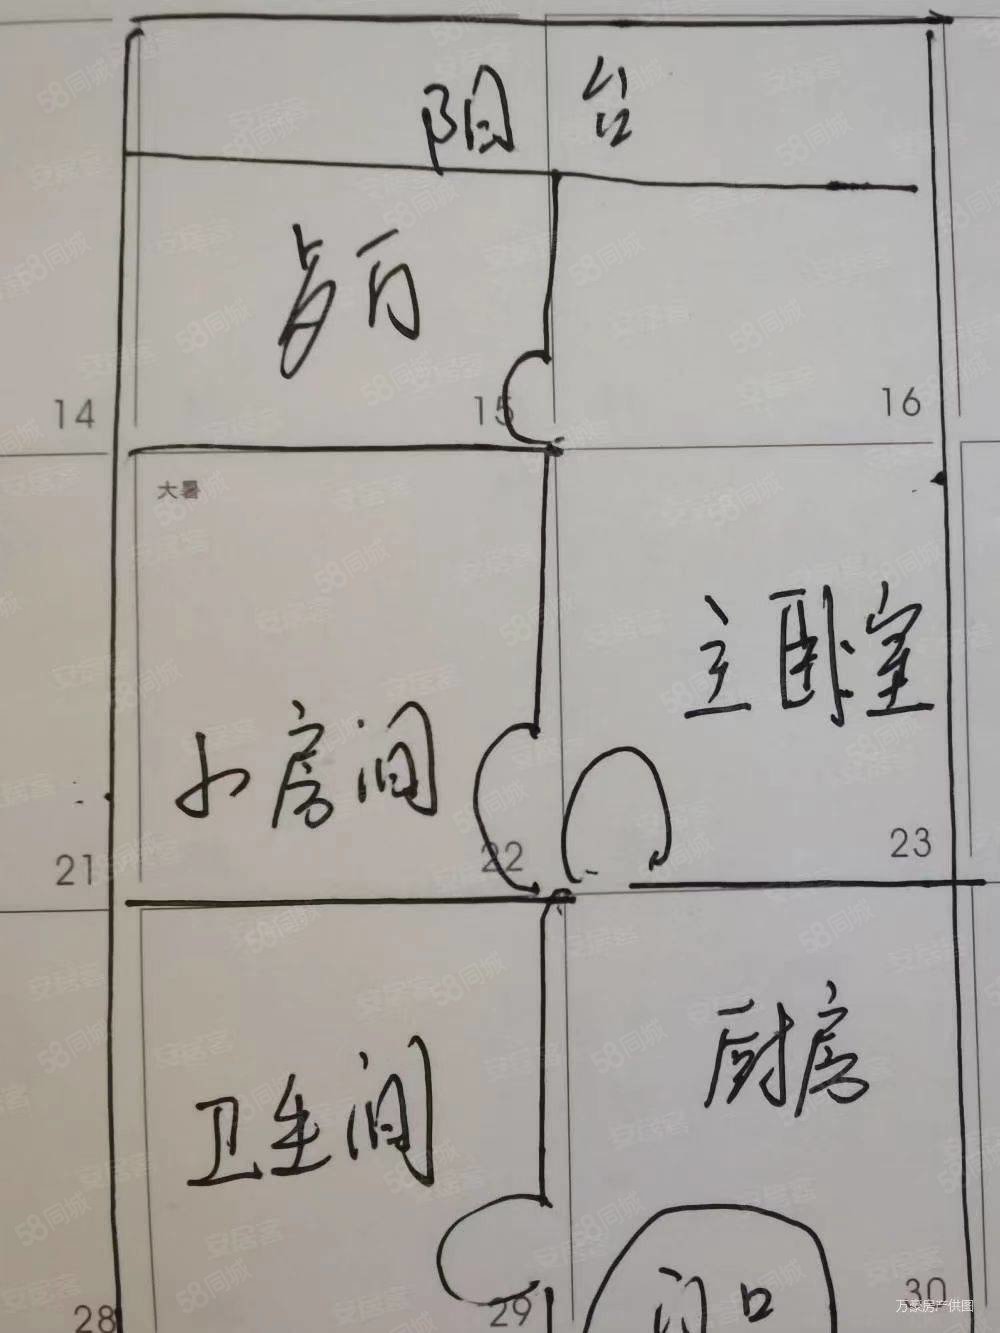 阳台
14
15
16
大暑
主卧室
小房间
21
22
23
厨房
卫生间
门口
28
29
30
万豪房产供图
58同城
安居客